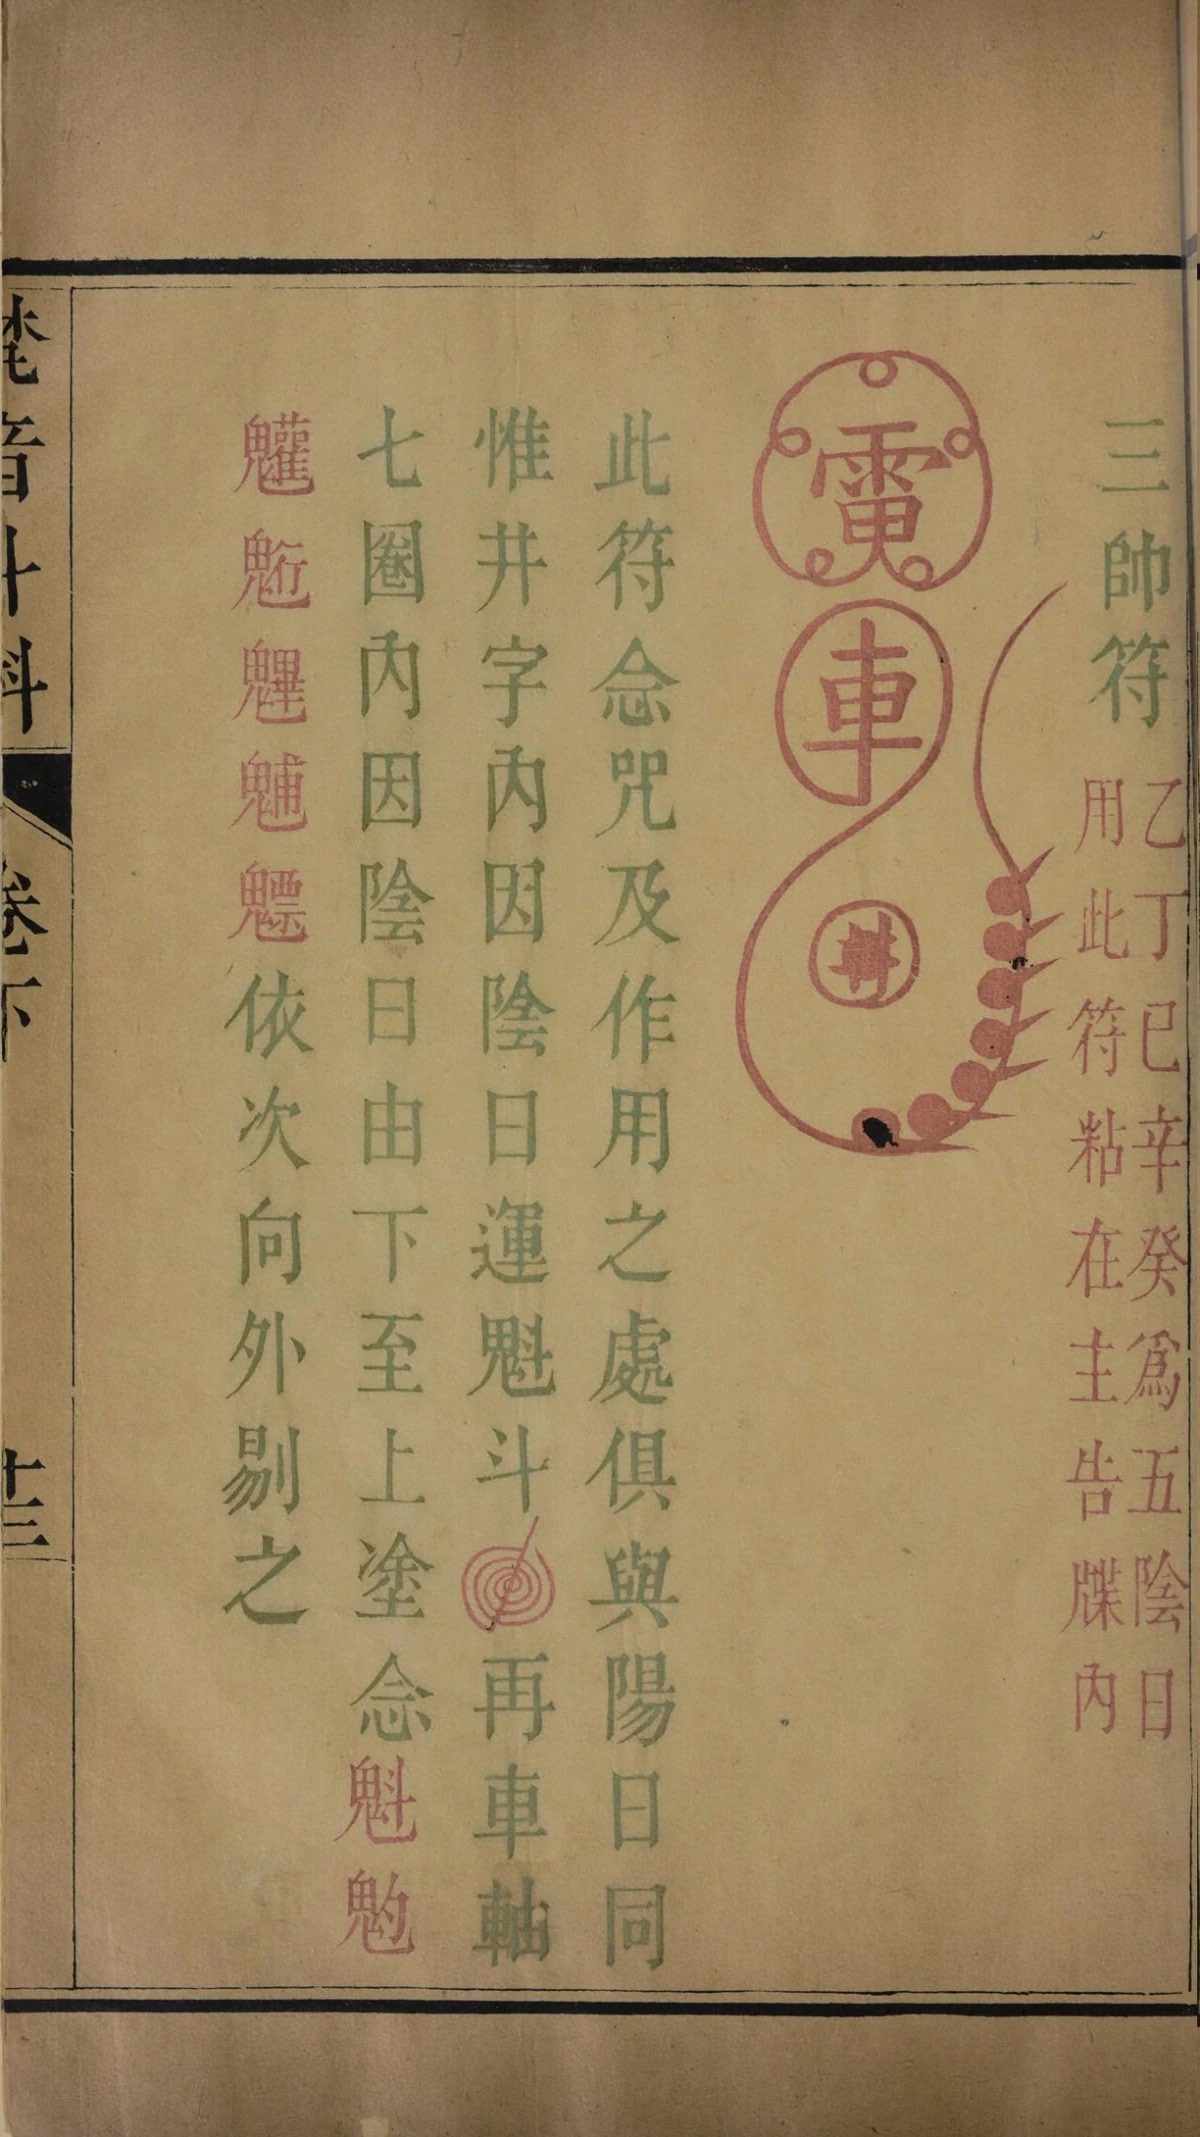 三帥符
乙丁已辛癸爲五陰日
用此符粘在主告牒內
電
車
井
此符念咒及作用之處俱與陽日同
惟井字內因陰日運魁斗再車軸
七圈內因陰日由下至上塗念魁魀
䰢魒依次向外剔之
卷下
十三